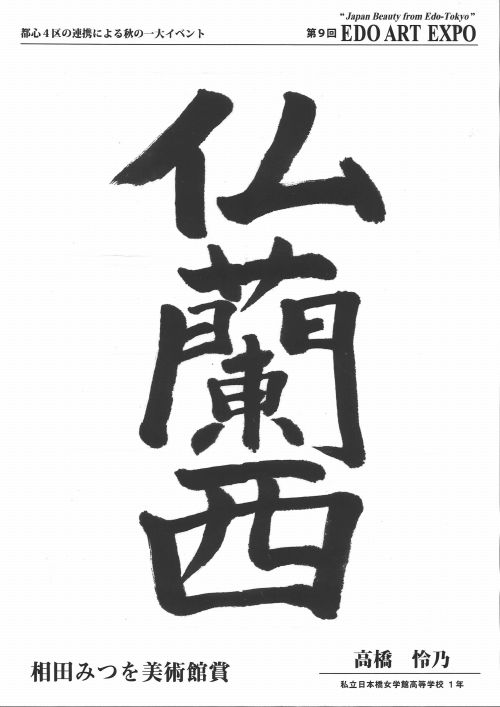 都心4区の連携による秋の一大イベント
"Japan Beauty from Edo-Tokyo"
第9回 EDO ART EXPO
仏
蘭
西
相田みつを美術館賞
高橋 怜乃
私立日本橋女学館高等学校 1年